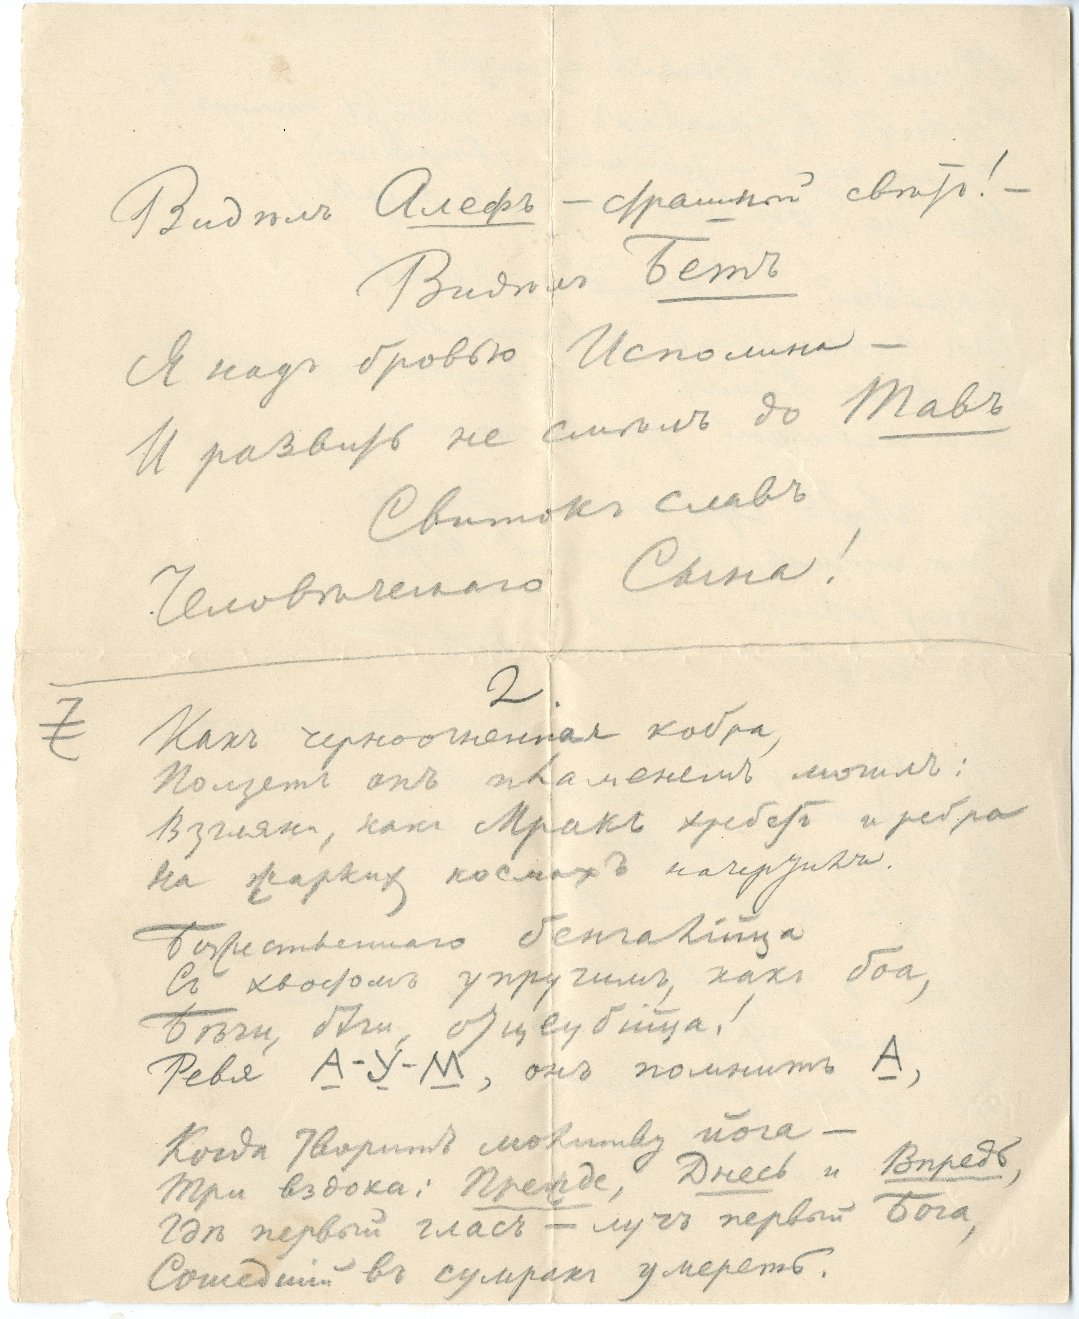 Видѣлъ Алефъ – страшный свѣтъ! –
Видѣлъ Бетъ
Я надъ бровью Исполина –
И развить не смѣлъ до Тавъ
Свитокъ славъ
Человѣческаго Сына!
2.
7
Какъ черноогненная кобра,
Ползетъ онъ пламенемъ могилъ:
Взгляни, какъ Мракъ хребетъ и ребра
На жаркихъ космахъ начертилъ.
Божественнаго бенгалійца
Съ хвостомъ упругимъ, какъ боа,
Бѣги, бѣги, отцеубійца!
Ревя А-У-М, онъ помнитъ А,
Когда творитъ молитву йога –
Три вздоха: Прежде, Днесь и Впредь,
Гдѣ первый гласъ – лучъ первый Бога,
Сошедшій въ сумракъ умереть.